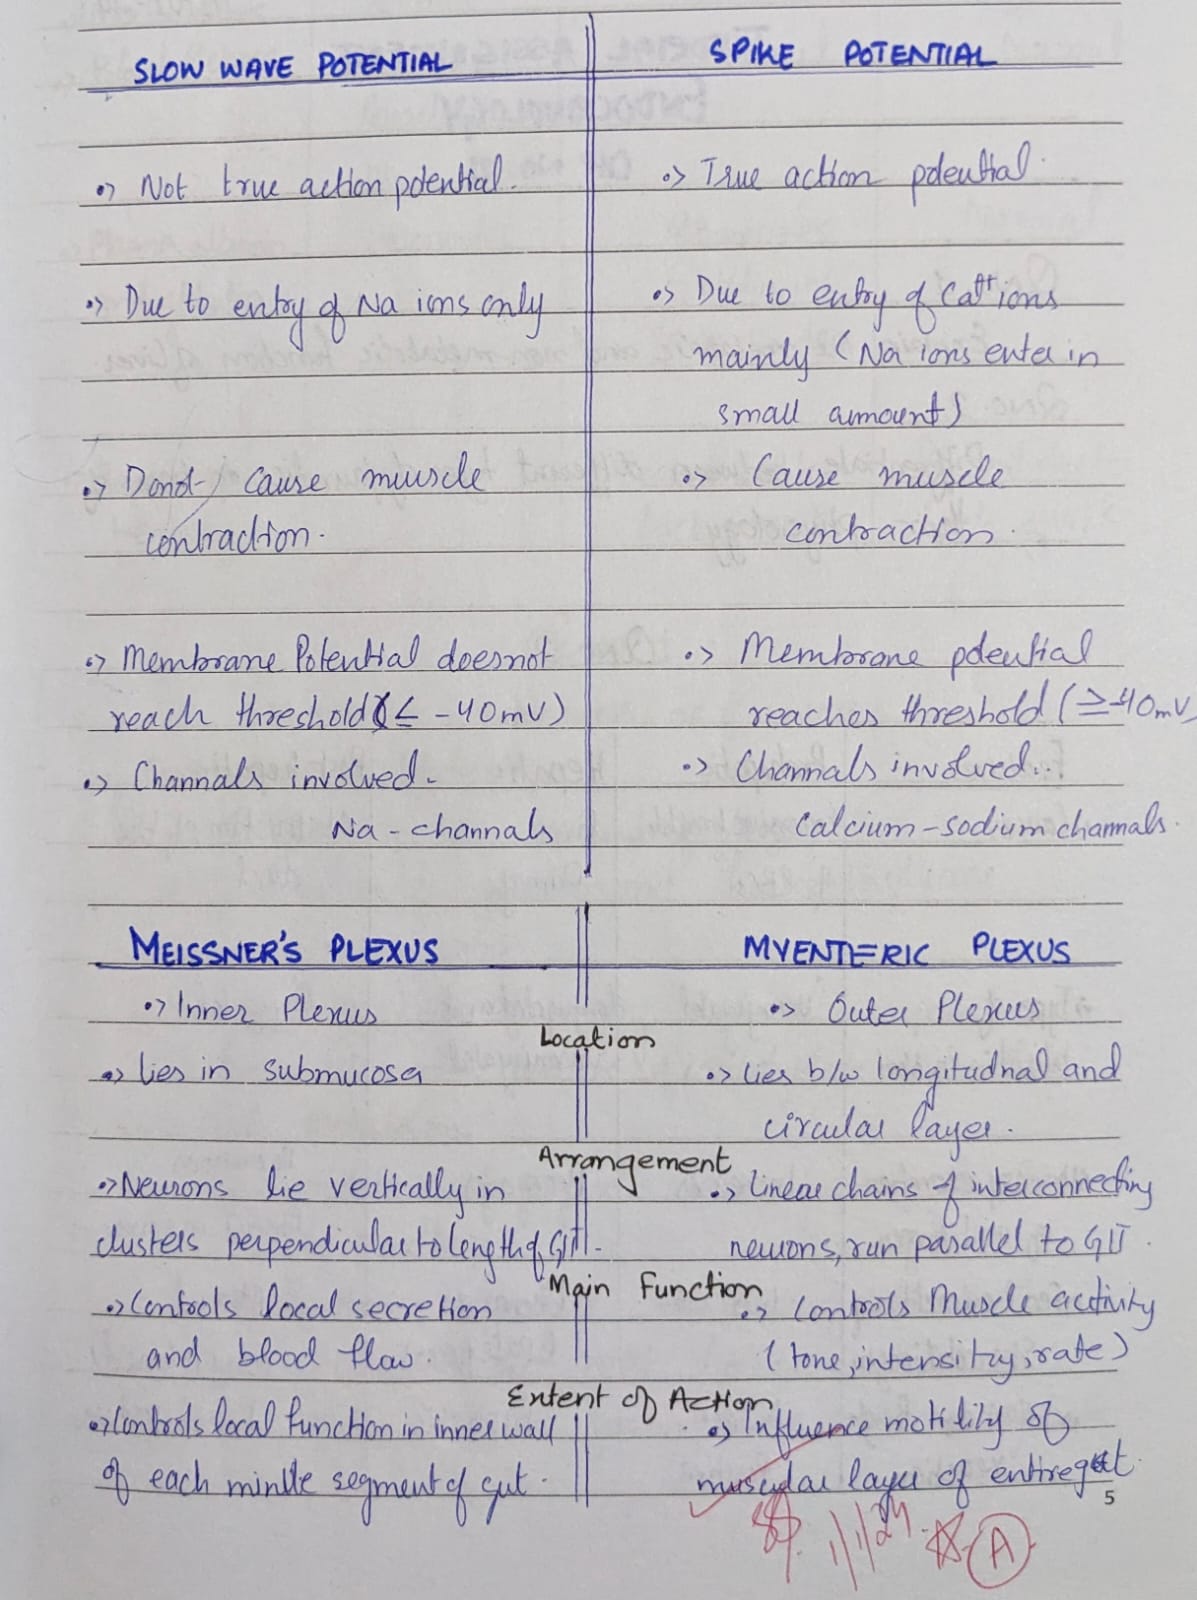 SLOW WAVE POTENTIAL
SPIKE POTENTIAL
•> Not true action potential.
•> True action potential.
•> Due to entry of Na ions only
•> Due to entry of Ca++ ions
mainly (Na ions enter in
small amount)
•> Donot cause muscle
contraction.
•> Cause muscle
contraction.
•> Membrane Potential doesnot
reach threshold (≤ -40mV)
•> Membrane potential
reaches threshold (≥-40mV
•> Channals involved.
Na - channals
•> Channals involved..
Calcium-sodium channals.
MEISSNER'S PLEXUS
MYENTERIC PLEXUS
•> Inner Plexus
•> Outer Plexus
Location
•> lies in submucosa
•> Lies b/w longitudnal and
circular layer.
Arrangement
•> Neurons lie vertically in
clusters perpendicular to length of GIT.
•> Linear chains of interconnecting
neurons, run parallel to GIT.
Main Function
•> Controls local secretion
and blood flow.
•> Controls Muscle activity
(tone, intensity, rate)
Extent of Action
•> Controls local function in inner wall
of each minute segment of gut.
•> Influence motility of
muscular layer of entire gut.
5
1/1/24
A